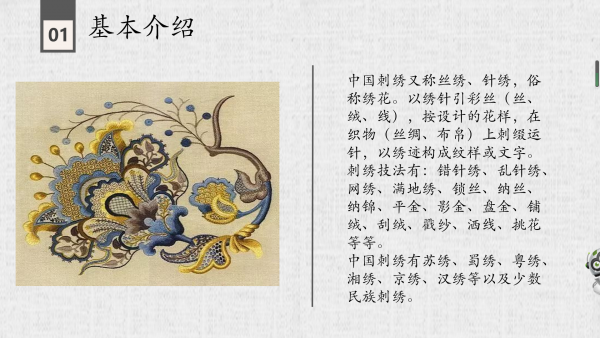 01
基本介绍
中国刺绣又称丝绣、针绣，俗
称绣花。以绣针引彩丝（丝、
绒、线），按设计的花样，在
织物（丝绸、布帛）上刺缀运
针，以绣迹构成纹样或文字。
刺绣技法有：错针绣、乱针绣、
网绣、满地绣、锁丝、纳丝、
纳锦、平金、影金、盘金、铺
绒、刮绒、戳纱、洒线、挑花
等等。
中国刺绣有苏绣、蜀绣、粤绣、
湘绣、京绣、汉绣等以及少数
民族刺绣。